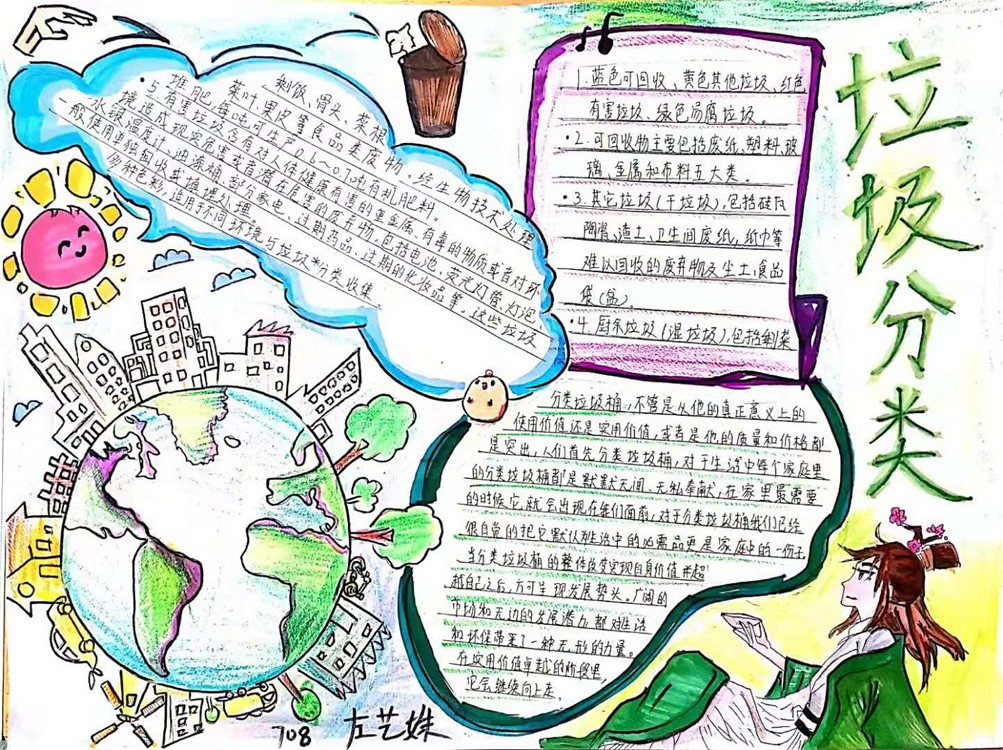 垃圾分类
1.蓝色可回收、黄色其他垃圾、红色
有害垃圾、绿色易腐垃圾。
·2.可回收物主要包括废纸、塑料、玻
璃、金属和布料五大类。
·3.其它垃圾(干垃圾),包括砖瓦
陶瓷、渣土、卫生间废纸,纸巾等
难以回收的废弃物及尘土、食品
袋(盒)。
·4.厨余垃圾(湿垃圾),包括剩菜
剩饭、骨头、菜根
菜叶、果皮等食品类废物.统生物技术处理
堆肥,每吨可生产0.6~0.7吨有机肥料。
·5.有害垃圾含有对人体健康有害的重金属、有毒的物质或者对环
境造成现实危害或者潜在危害的废弃物,包括电池、荧光灯管、灯泡、
水银温度计、油漆桶、部分家电、过期药品、过期的化妆品等。这些垃圾
一般使用单独回收或填埋处理
多种色彩,适用于不同环境与垃圾分类收集。
分类垃圾桶,不管是从他的真正意义上的
使用价值还是实用价值,或者是他的质量和价格都
是突出,人们首先分类垃圾桶,对于生活中每个家庭里
的分类垃圾桶都是默默无闻、无私奉献,在家里最需要
的时候它就会出现在我们面前,对于分类垃圾桶我们已经
很自觉的把它默认对生活中的必需品更是家庭中的一份子
当分类垃圾桶的整体改变实现自身价值并超
越自己之后,方可呈现发展势头。广阔的
市场和无边的发展潜力都对生活
和环保带来了一种无形的力量。
在实用价值卓越的阶段里,
它会继续向上走。
708 左艺姝